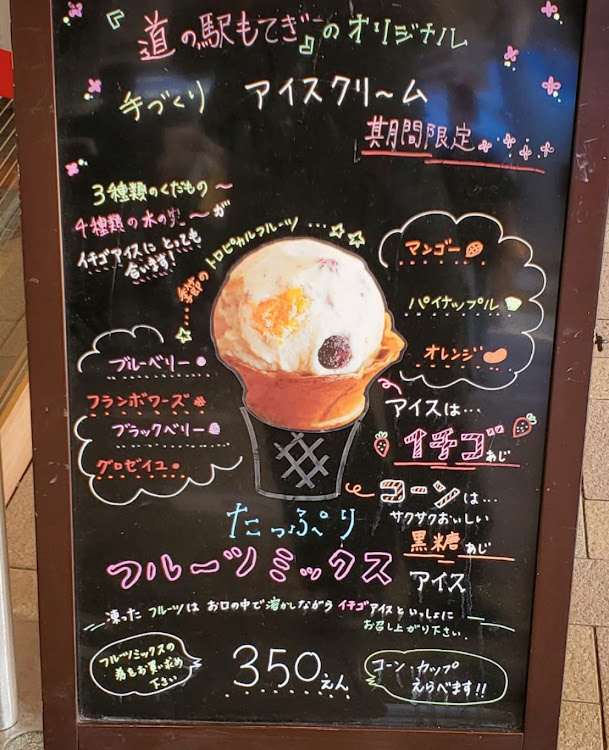 『道の駅もてぎ』のオリジナル
手づくり アイスクリーム
期間限定
3種類のくだもの〜
4種類の木の実〜が
イチゴアイスにとっても
合います!
季節のトロピカルフルーツ…
マンゴー
パイナップル
オレンジ
ブルーベリー
フランボワーズ
ブラックベリー
グロゼイユ
アイスは…
イチゴあじ
コーンは…
サクサクおいしい
黒糖あじ
たっぷり
フルーツミックス アイス
凍ったフルーツはお口の中で溶かしながらイチゴアイスといっしょに
お召し上がり下さい.
フルーツミックスの
券をお買い求め
下さい
350えん
コーン・カップ
えらべます!!